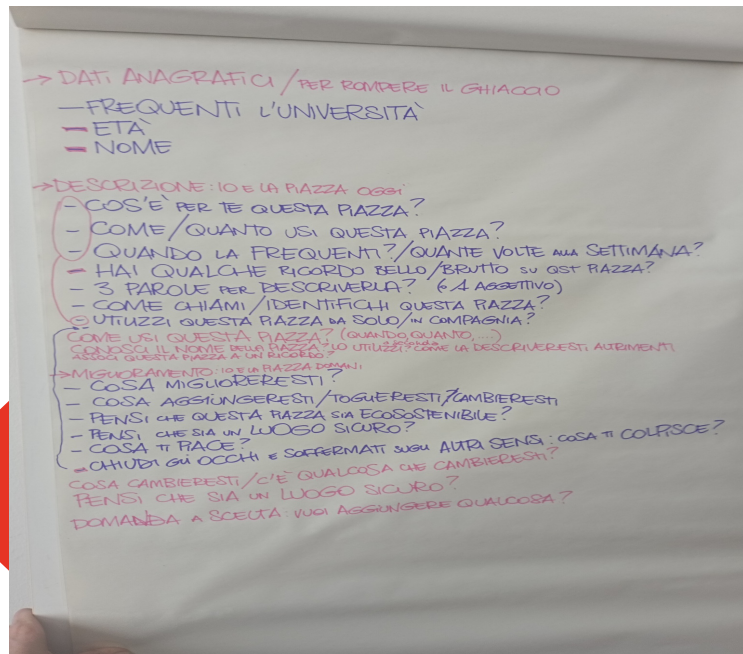 → DATI ANAGRAFICI / PER ROMPERE IL GHIACCIO
- FREQUENTI L'UNIVERSITÀ
- ETÀ
- NOME
→ DESCRIZIONE: IO E LA PIAZZA OGGI
- COS'E' PER TE QUESTA PIAZZA?
- COME/QUANTO USI QUESTA PIAZZA?
- QUANDO LA FREQUENTI?/QUANTE VOLTE ALLA SETTIMANA?
- HAI QUALCHE RICORDO BELLO/BRUTTO SU QST PIAZZA?
- 3 PAROLE PER DESCRIVERLA? (O 1 AGGETTIVO)
- COME CHIAMI/IDENTIFICHI QUESTA PIAZZA?
- UTILIZZI QUESTA PIAZZA DA SOLO/IN COMPAGNIA?
COME USI QUESTA PIAZZA? (QUANDO, QUANTO, ...)
CONOSCI IL NOME DELLA PIAZZA? LO UTILIZZI? COME LA DESCRIVERESTI ALTRIMENTI
ASSOCI QUESTA PIAZZA A UN RICORDO?
→ MIGLIORAMENTO: IO E LA PIAZZA DOMANI
- COSA MIGLIORERESTI?
- COSA AGGIUNGERESTI/TOGLIERESTI/CAMBIERESTI
- PENSI CHE QUESTA PIAZZA SIA ECOSOSTENIBILE?
- PENSI CHE SIA UN LUOGO SICURO?
- COSA TI PIACE?
- CHIUDI GLI OCCHI E SOFFERMATI SUGLI ALTRI SENSI: COSA TI COLPISCE?
COSA CAMBIERESTI/C'È QUALCOSA CHE CAMBIERESTI?
PENSI CHE SIA UN LUOGO SICURO?
DOMANDA A SCELTA: VUOI AGGIUNGERE QUALCOSA?